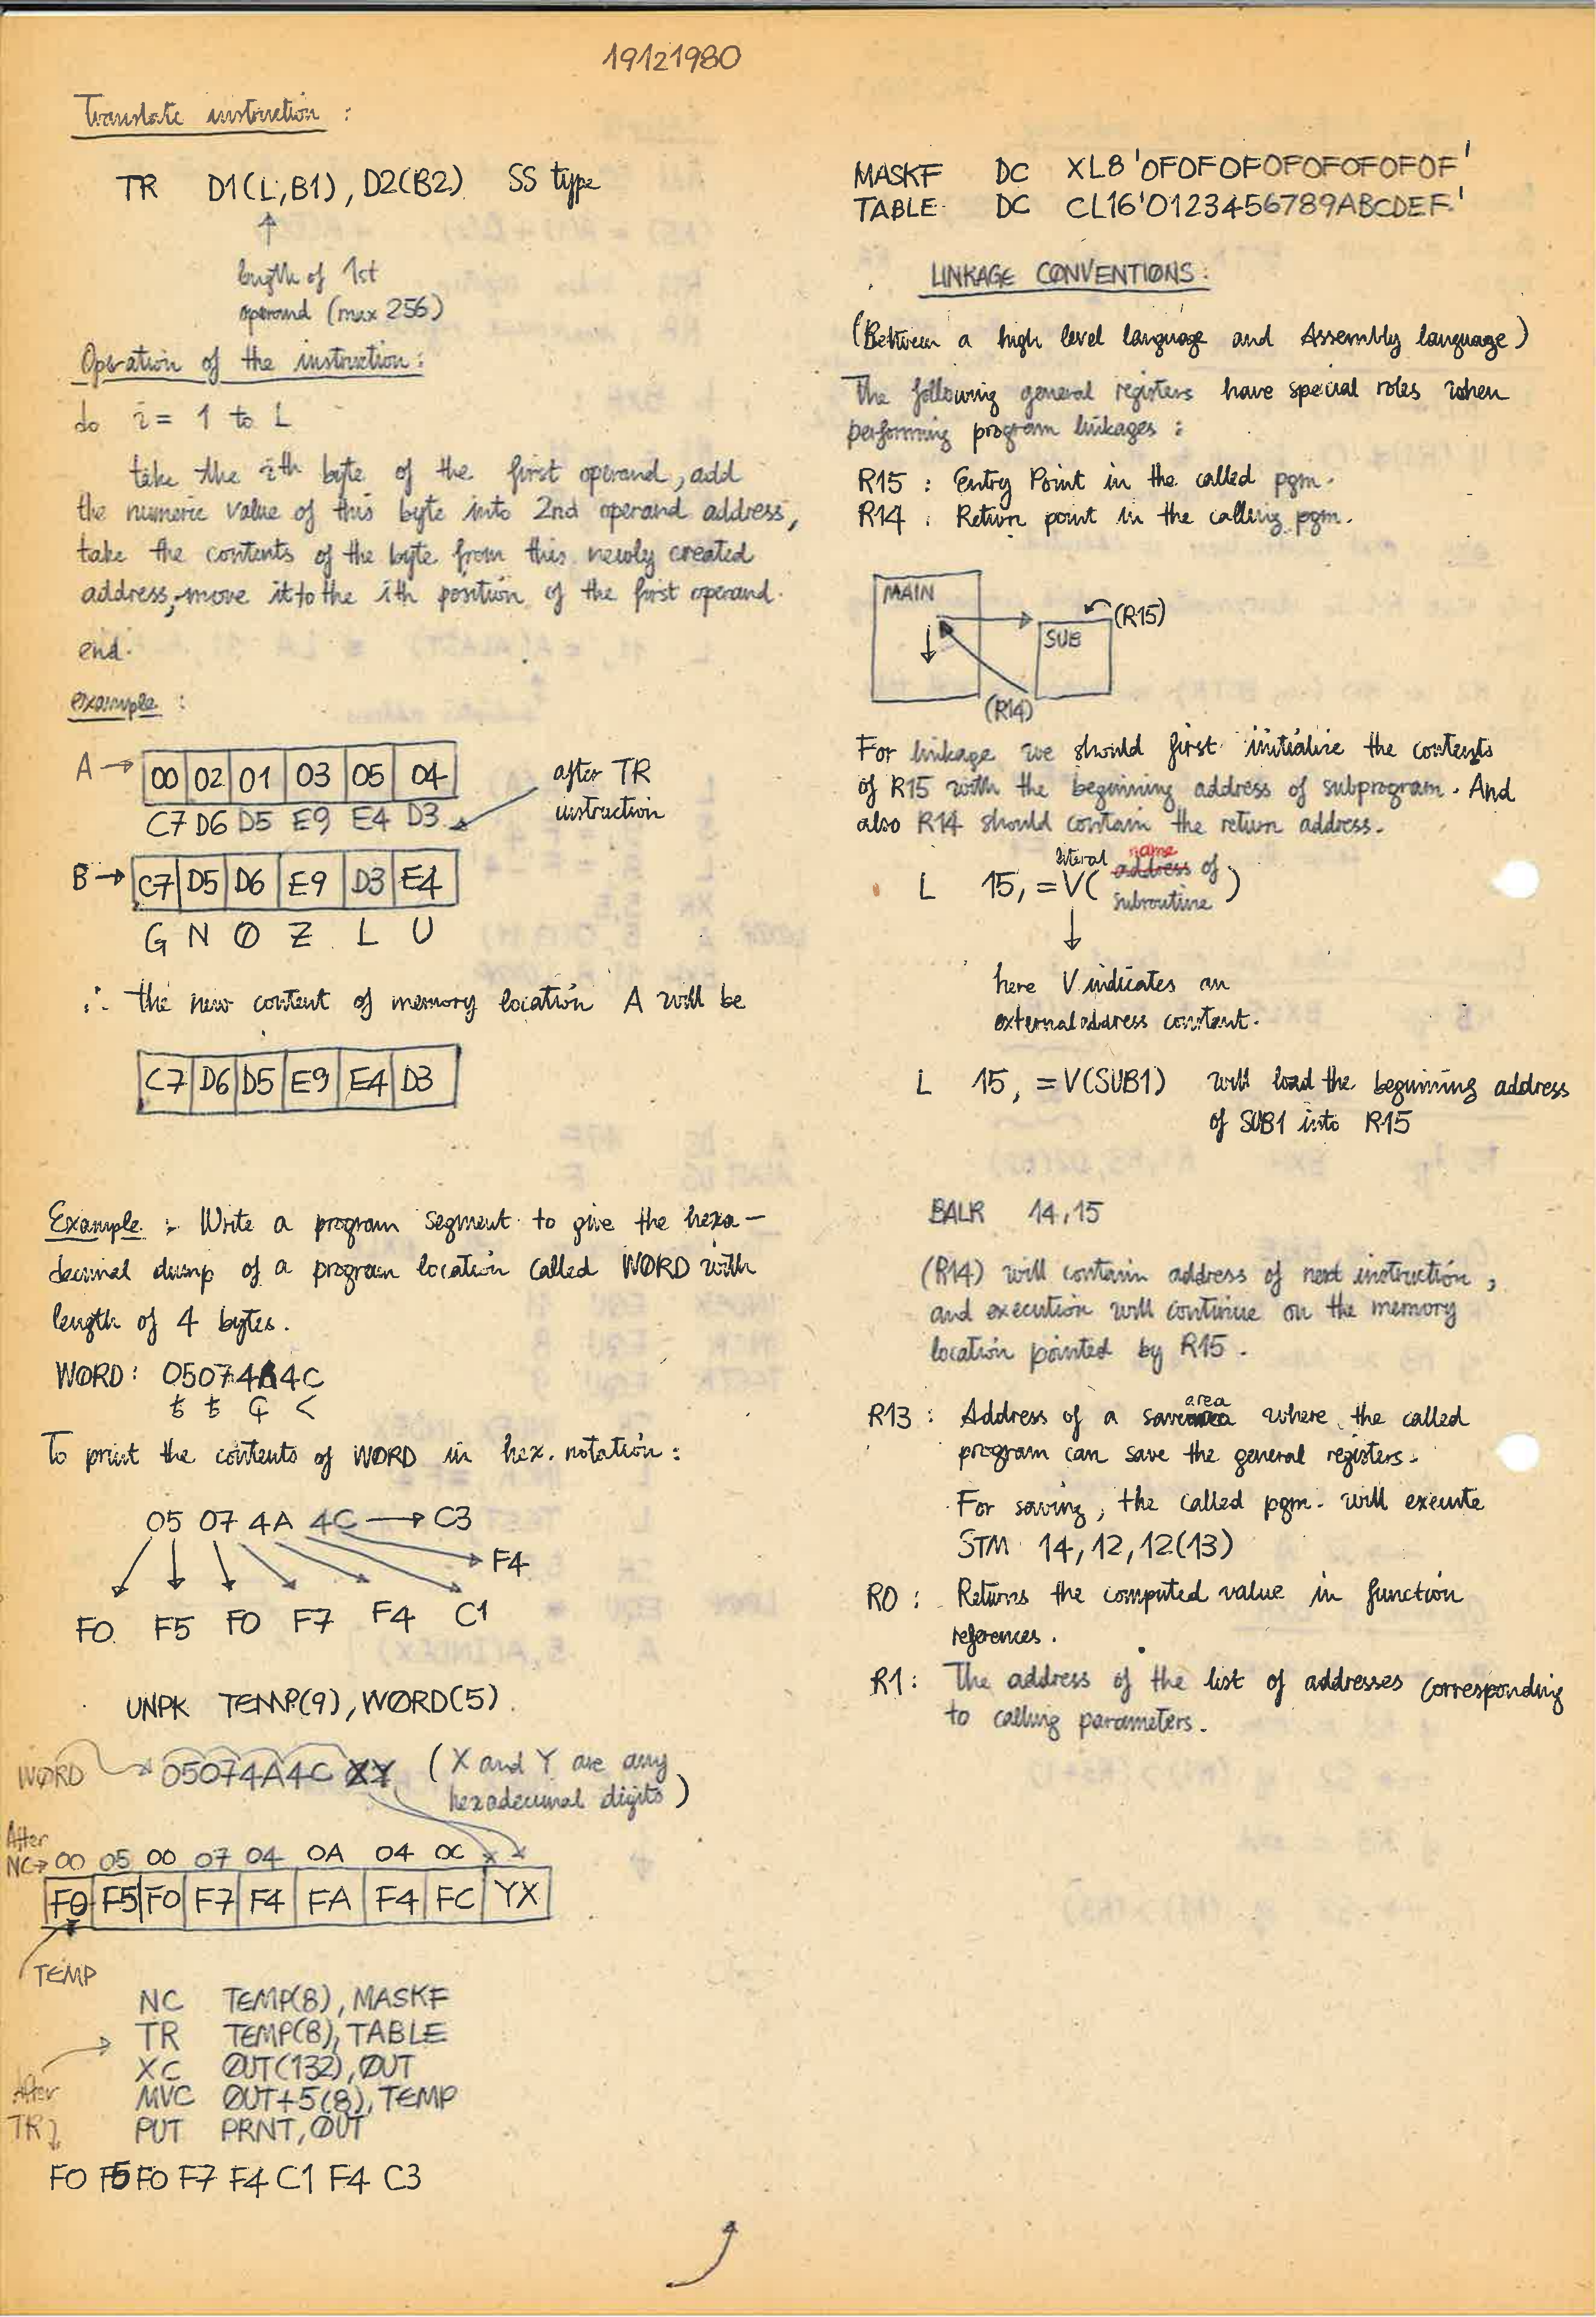 19121980
Translate instruction :
TR D1(L,B1), D2(B2) SS type
length of 1st
operand (max 256)
Operation of the instruction:
do i = 1 to L
take the ith byte of the first operand, add
the numeric value of this byte into 2nd operand address,
take the contents of the byte from this newly created
address, move it to the ith position of the first operand.
end.
example :
A → 00 02 01 03 05 04
C7 D6 D5 E9 E4 D3
after TR
instruction
B → C7 D5 D6 E9 D3 E4
G N Ø Z L U
∴ the new content of memory location A will be
C7 D6 D5 E9 E4 D3
Example : Write a program segment to give the hexa-
decimal dump of a program location called WØRD with
length of 4 bytes.
WØRD : 05074A4C
ѣ ѣ ¢ <
To print the contents of WØRD in hex. notation :
05 07 4A 4C → C3
F4
F0 F5 F0 F7 F4 C1
UNPK TEMP(9), WØRD(5)
WØRD → 05074A4C XY (X and Y are any
hexadecimal digits)
After
NC→ 00 05 00 07 04 0A 04 0C x x
F0 F5 F0 F7 F4 FA F4 FC YX
TEMP
NC TEMP(8), MASKF
TR TEMP(8), TABLE
XC ØUT(132), ØUT
MVC ØUT+5(8), TEMP
PUT PRNT, ØUT
After
TR
F0 F5 F0 F7 F4 C1 F4 C3
MASKF DC XL8'0F0F0F0F0F0F0F0F'
TABLE DC CL16'0123456789ABCDEF'
LINKAGE CØNVENTIØNS :
(Between a high level language and Assembly language)
The following general registers have special roles when
performing program linkages :
R15 : Entry Point in the called pgm.
R14 : Return point in the calling pgm.
MAIN
SUB
(R15)
(R14)
For linkage we should first initialize the contents
of R15 with the beginning address of subprogram. And
also R14 should contain the return address.
literal name
L 15, =V( address of
subroutine )
here V indicates an
external address constant.
L 15, =V(SUB1) will load the beginning address
of SUB1 into R15
BALR 14,15
(R14) will contain address of next instruction,
and execution will continue on the memory
location pointed by R15.
area
R13 : Address of a save where the called
program can save the general registers.
For saving, the called pgm. will execute
STM 14,12,12(13)
R0 : Returns the computed value in function
references.
R1 : The address of the list of addresses corresponding
to calling parameters.